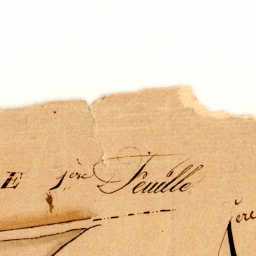 E 1ère Feuille
1ère